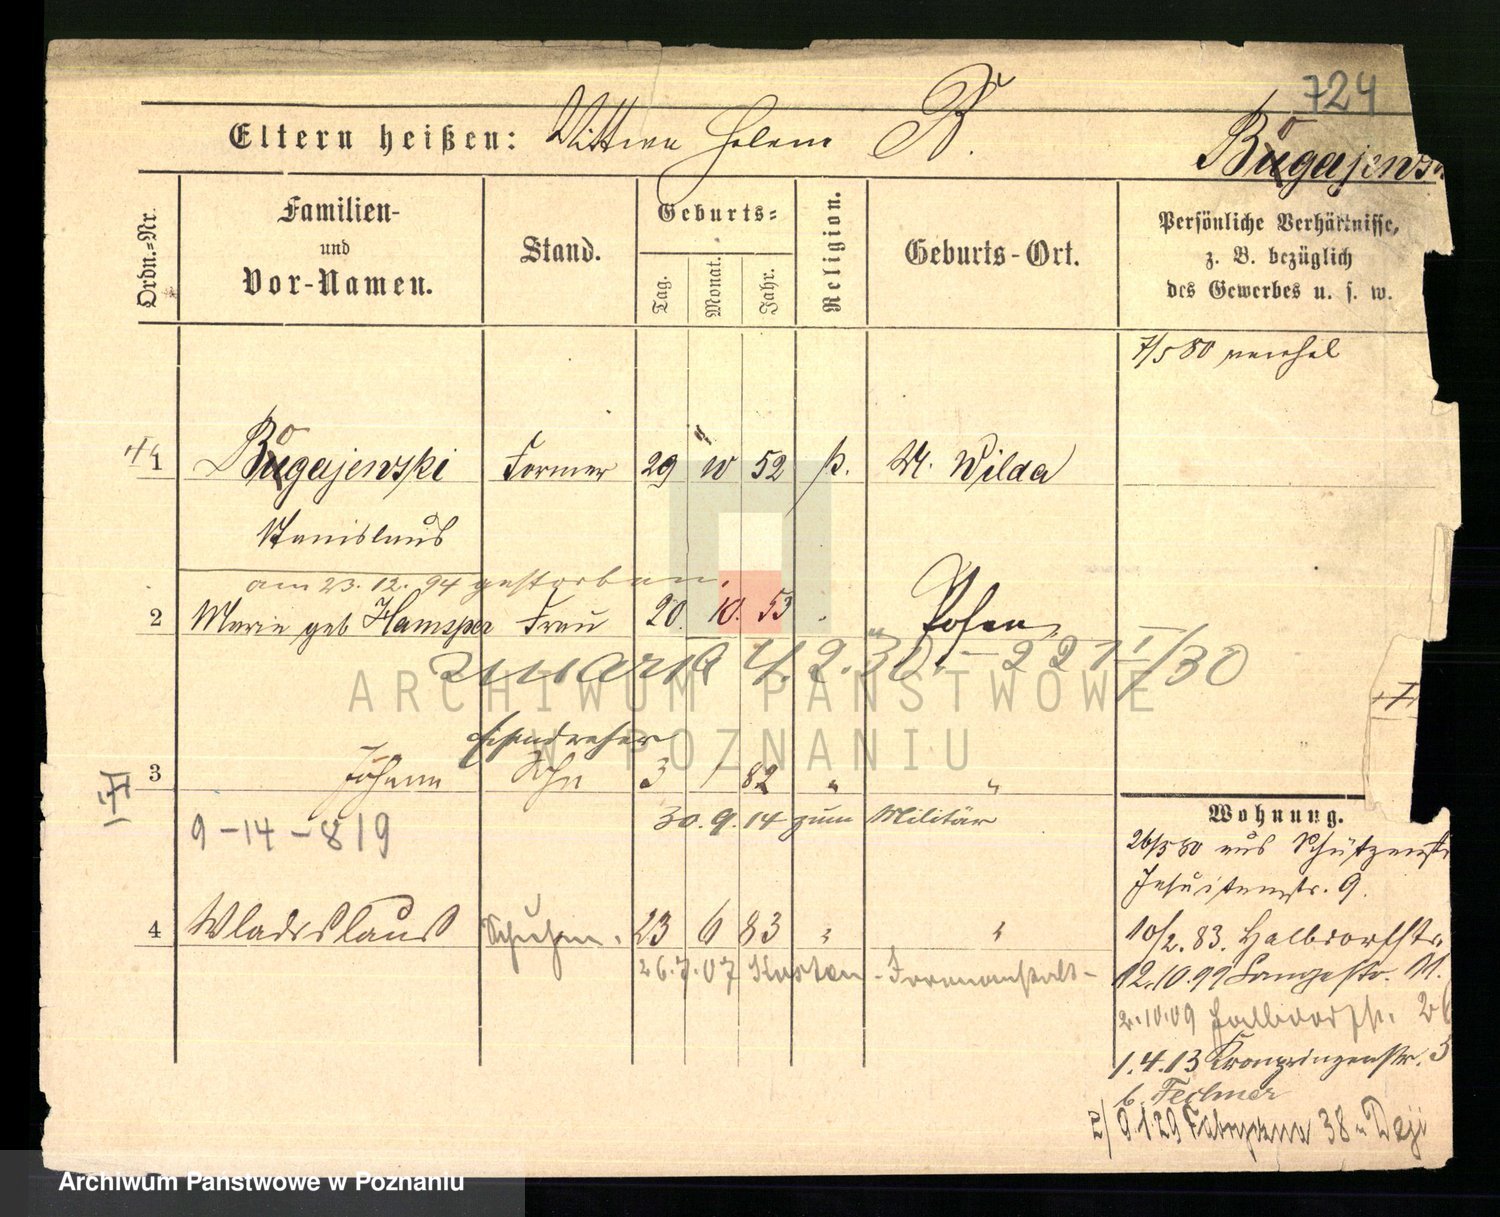 724
Eltern heißen: Helene B.
Bugajews
Ordn.-Nr.
Familien-
und
Vor-Namen.
Stand.
Geburts-
Tag.
Monat.
Jahr.
Religion.
Geburts-Ort.
Persönliche Verhältnisse,
z. B. bezüglich
des Gewerbes u. s. w.
7/5 80
1 Bugajewski Former 29 52 Wilda
Stanislaus
am 23.12.94 gestorben.
2 Marie geb Frau 20. 10. 53 Posen
zmarła 4.2.30. – 221 I/30
ARCHIWUM PAŃSTWOWE
W POZNANIU
Eisendreher
3 Johann Sohn 3 1 82 " "
30.9.14 zum Militär
9-14-819
Wohnung.
26/5 80 aus Schützenstr
Jesuitenstr. 9.
4 Wladislaus 23 6 83 " "
26.7.07 Kosten - Irrenanstalt -
10/2. 83. Halbdorfstr.
12.10.99 Langestr. 11.
2.10.09 Halbdorfstr. 26
1.4.13 Kronprinzenstr. 3
b.
9.1.29 Fabryczna 38
Archiwum Państwowe w Poznaniu